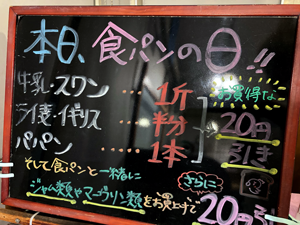 本日、食パンの日!!
牛乳・スワン…1斤
ライ麦・イギリス…半分
パパン…1本
お買得な
20円
引き
そして食パンと一緒に
ジャム類やマーガリン類をお買上げで
さらに
20円引